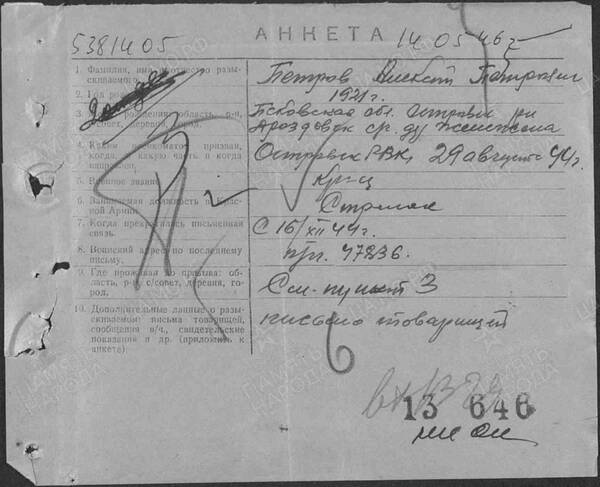 53814 05
АНКЕТА
14 05 46 г
1. Фамилия, имя и отчество разыскиваемого.
Петров Алексей
2. Год рождения
1921 г.
3.
Псковская обл. Островск рн
Дроздовск ср.
4. Каким военкоматом призван, когда, в какую часть и когда направлен.
Островск РВК, 29 августа 44 г.
5. Военное звание
Кр-ц
6. Занимаемая должность в Красной Армии
Стрелок
7. Когда прекратилась письменная связь.
С 16/XII 44 г.
8. Воинский адрес по последнему письму.
п/п. 47236.
9. Где проживал до призыва: область, р-н, с/совет, деревня, город.
См. пункт 3
10. Дополнительные данные о разыскиваемом: письма товарищей, сообщения в/ч., свидетельские показания и др. (приложить к анкете)
письмо товарищей
13 646
ПАМЯТЬ
НАРОДА